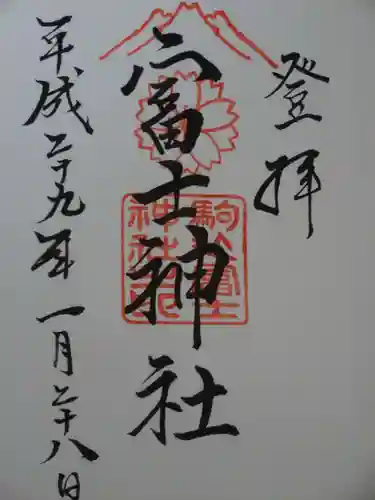 登拝
六富士神社
平成二十九年一月二十八日
駒込富士神社之印